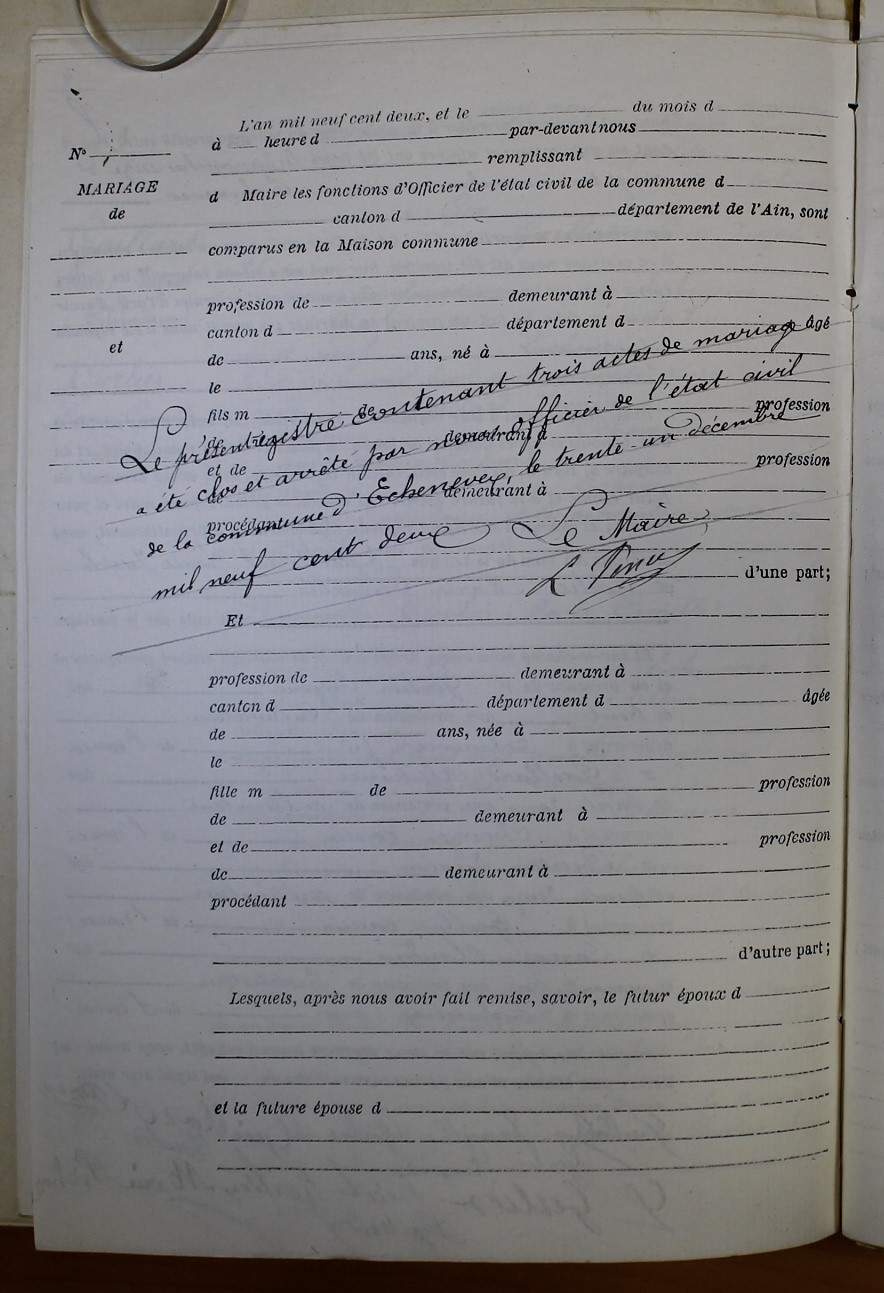 L'an mil neuf cent deux, et le du mois d
à heure d par-devant nous
N°
remplissant
MARIAGE
d Maire les fonctions d'Officier de l'état civil de la commune d
de
canton d département de l'Ain, sont
comparus en la Maison commune
profession de demeurant à
canton d département d âgé
et
de ans, né à
le
fils m de
profession
de demeurant à
et de
profession
de demeurant à
procédant
Le présent registre contenant trois actes de mariage
a été clos et arrêté par nous Officier de l'état civil
de la commune d'Echenevex, le trente-un décembre
mil neuf cent deux Le Maire
d'une part;
Et
profession de demeurant à
canton d département d âgée
de ans, née à
le
fille m de profession
de demeurant à
et de profession
de demeurant à
procédant
d'autre part;
Lesquels, après nous avoir fait remise, savoir, le futur époux d
et la future épouse d